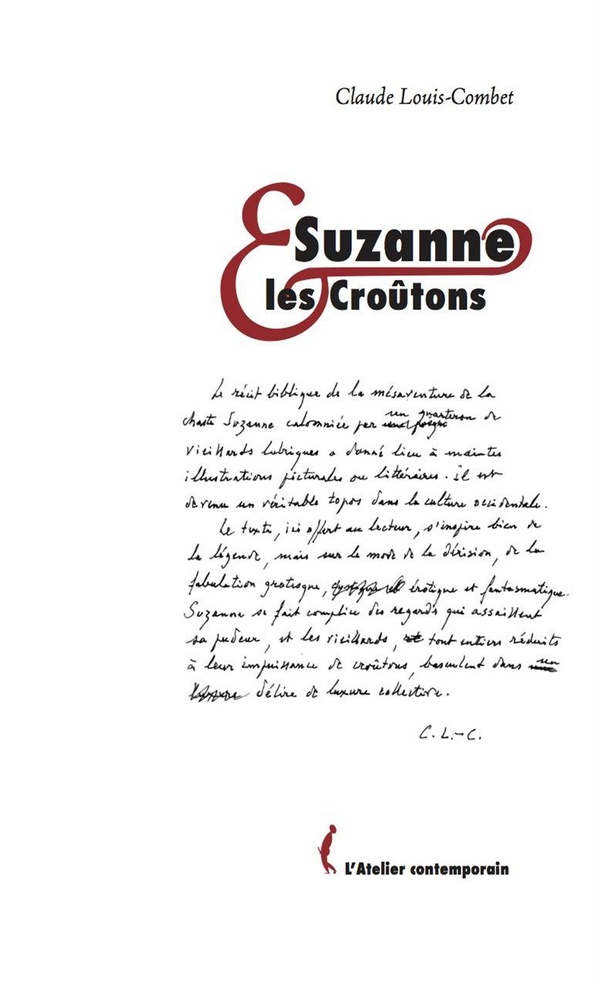 Claude Louis-Combet
& Suzanne
les Croûtons
Le récit biblique de la mésaventure de la
chaste Suzanne calomniée par un quarteron de
vieillards lubriques a donné lieu à maintes
illustrations picturales ou littéraires. Il est
devenu un véritable topos dans la culture occidentale.
Le texte, ici offert au lecteur, s'inspire bien de
la légende, mais sur le mode de la dérision, de la
fabulation grotesque, érotique et fantasmatique.
Suzanne se fait complice des regards qui assaillent
sa pudeur, et les vieillards, tout entiers réduits
à leur impuissance de croûtons, basculent dans un
délire de luxure collective.
C. L.-C.
L'Atelier contemporain